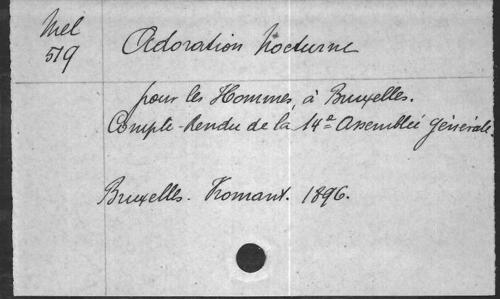 Mel
519
Adoration Nocturne
pour les Hommes, à Bruxelles.
Compte-Rendu de la 14e Assemblée générale.
Bruxelles. Fromant. 1896.